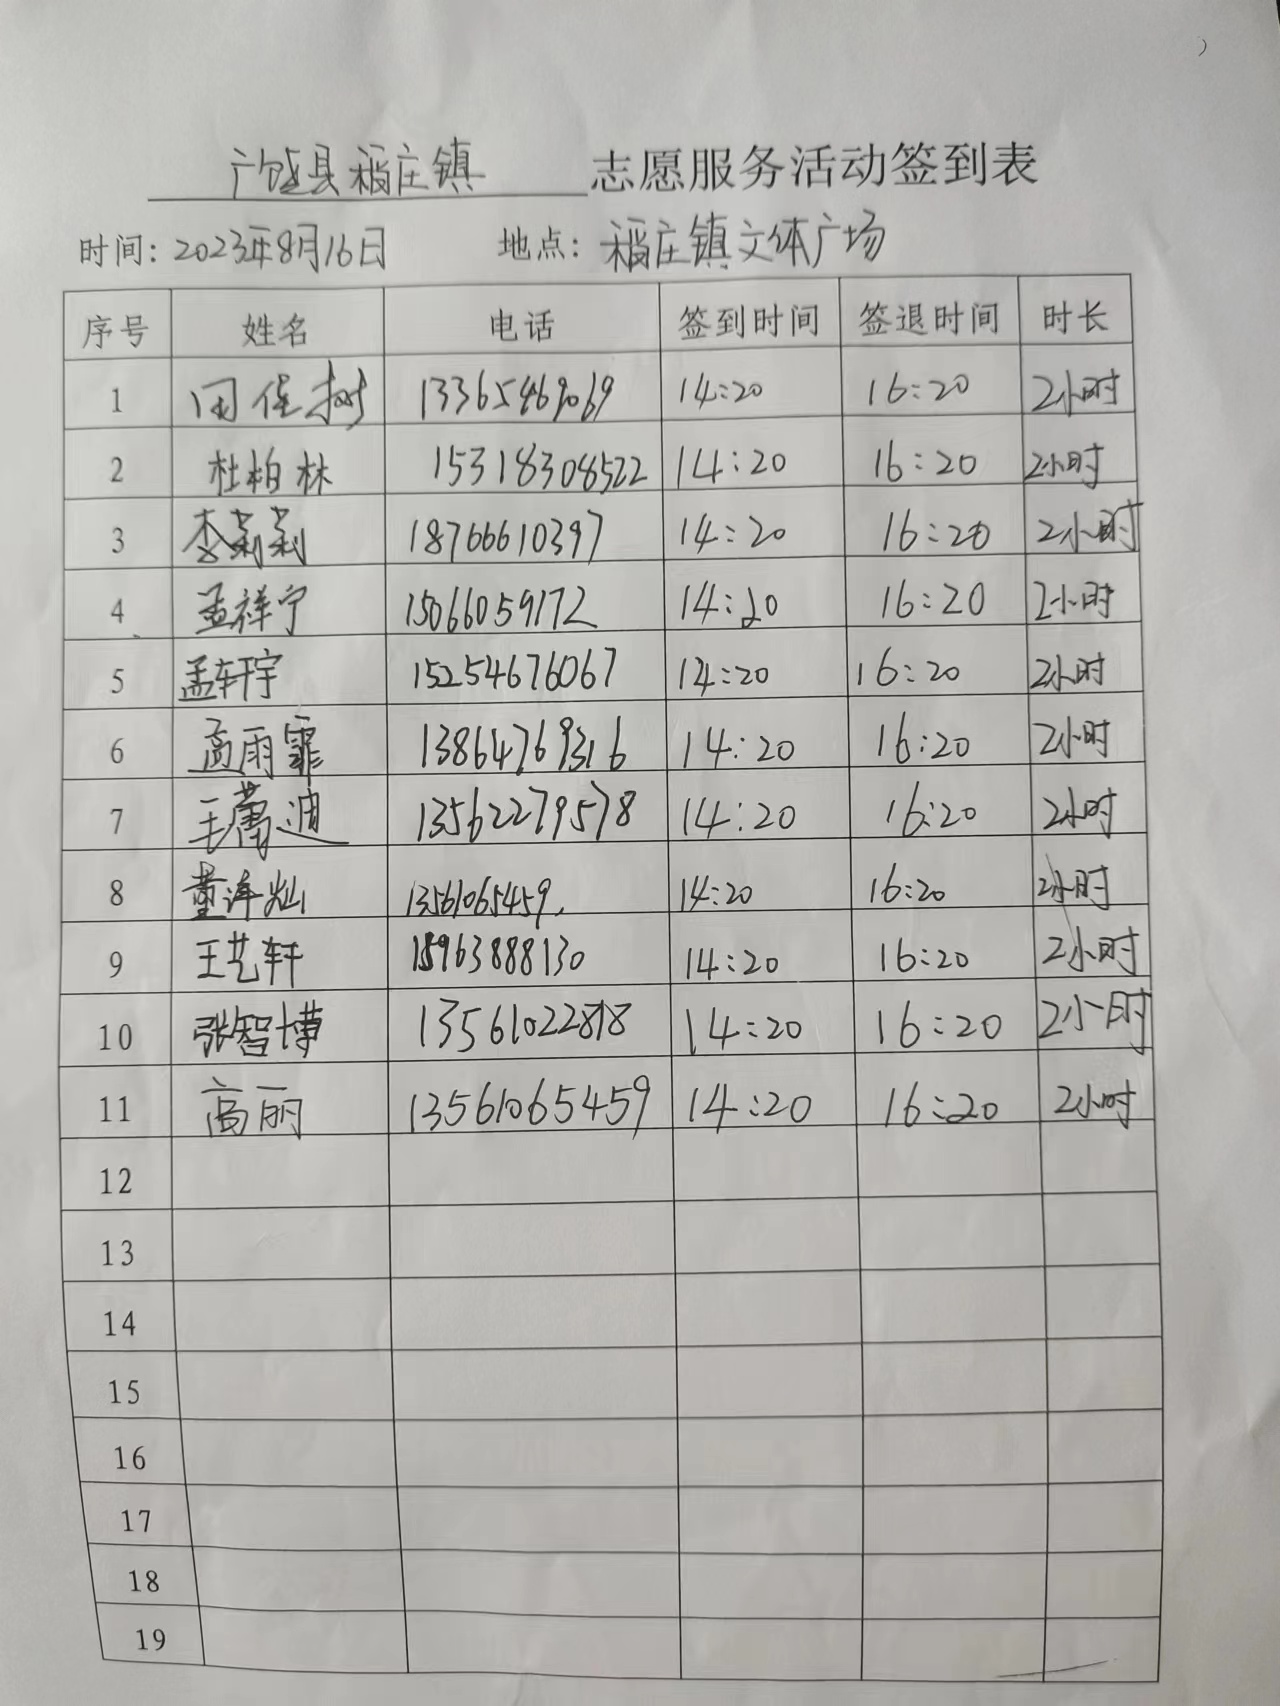 广饶县稻庄镇 志愿服务活动签到表
时间: 2023年8月16日 地点: 稻庄镇文体广场
序号 姓名 电话 签到时间 签退时间 时长
1 13365469069 14:20 16:20 2小时
2 杜柏林 15318308522 14:20 16:20 2小时
3 李莉莉 18766610397 14:20 16:20 2小时
4 孟祥宁 15066059172 14:20 16:20 2小时
5 孟轩宇 15254676067 14:20 16:20 2小时
6 孟雨霏 13864769316 14:20 16:20 2小时
7 王蕾迪 13562279578 14:20 16:20 2小时
8 董泽灿 13561065459. 14:20 16:20 2小时
9 王艺轩 15963888130 14:20 16:20 2小时
10 张智博 13561022818 14:20 16:20 2小时
11 高丽 13561065459 14:20 16:20 2小时
12
13
14
15
16
17
18
19